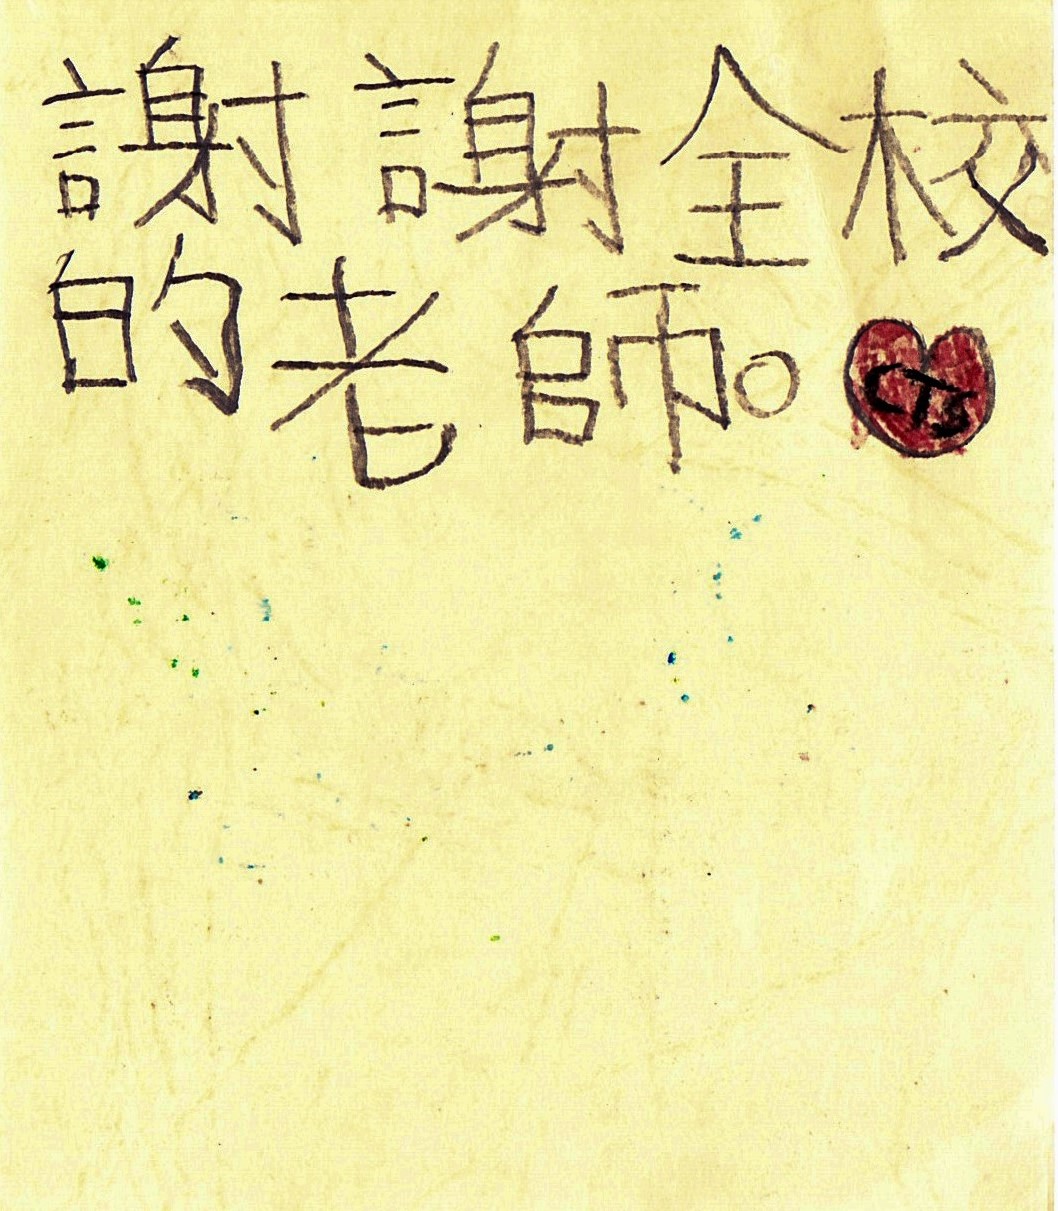 謝謝全校
的老師。 CTS